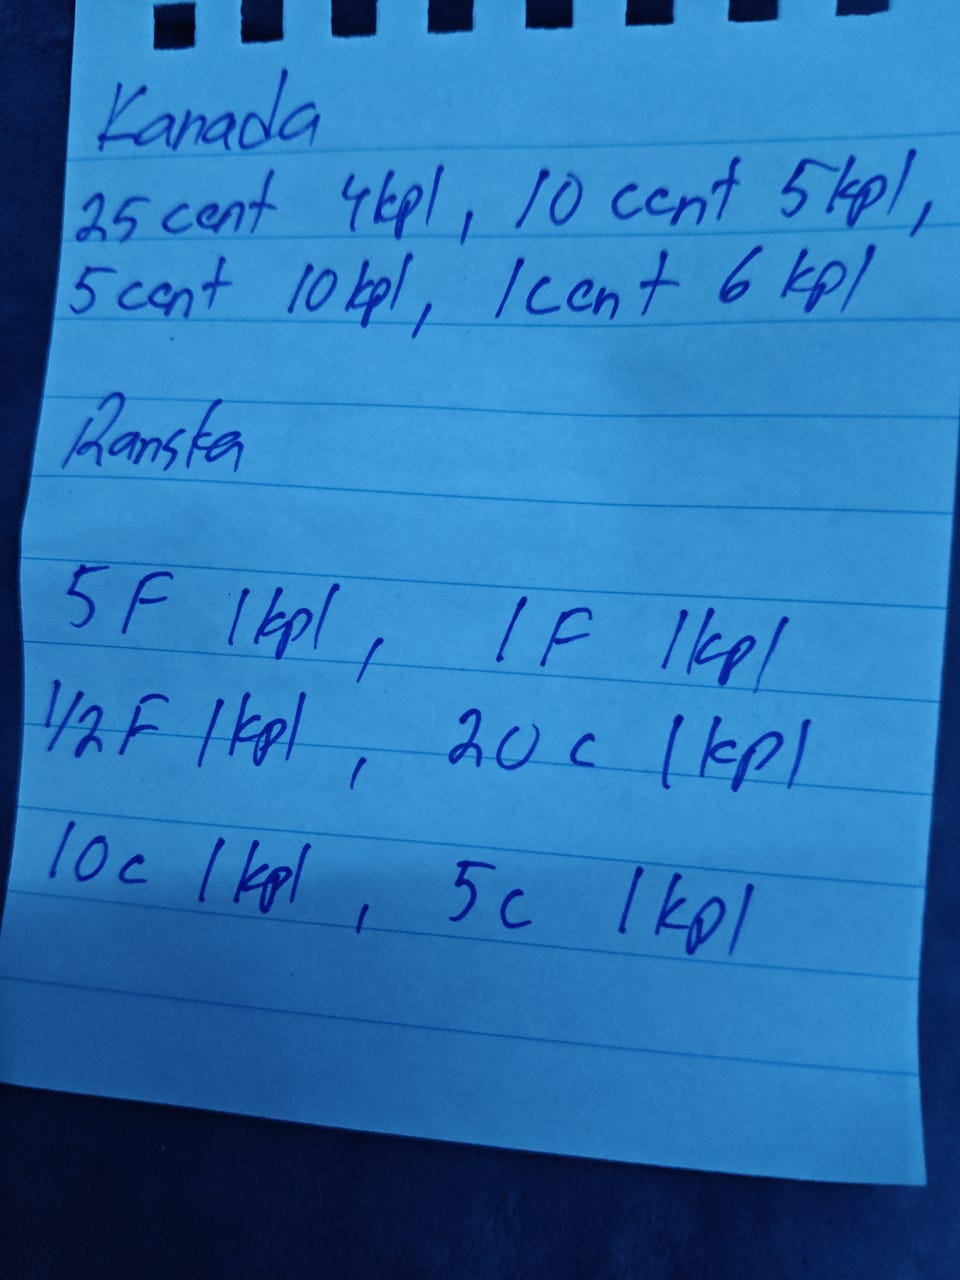 Kanada
25 cent 4 kpl, 10 cent 5 kpl,
5 cent 10 kpl, 1 cent 6 kpl
Ranska
5 F 1 kpl, 1 F 1 kpl
1/2 F 1 kpl, 20 c 1 kpl
10 c 1 kpl, 5 c 1 kpl